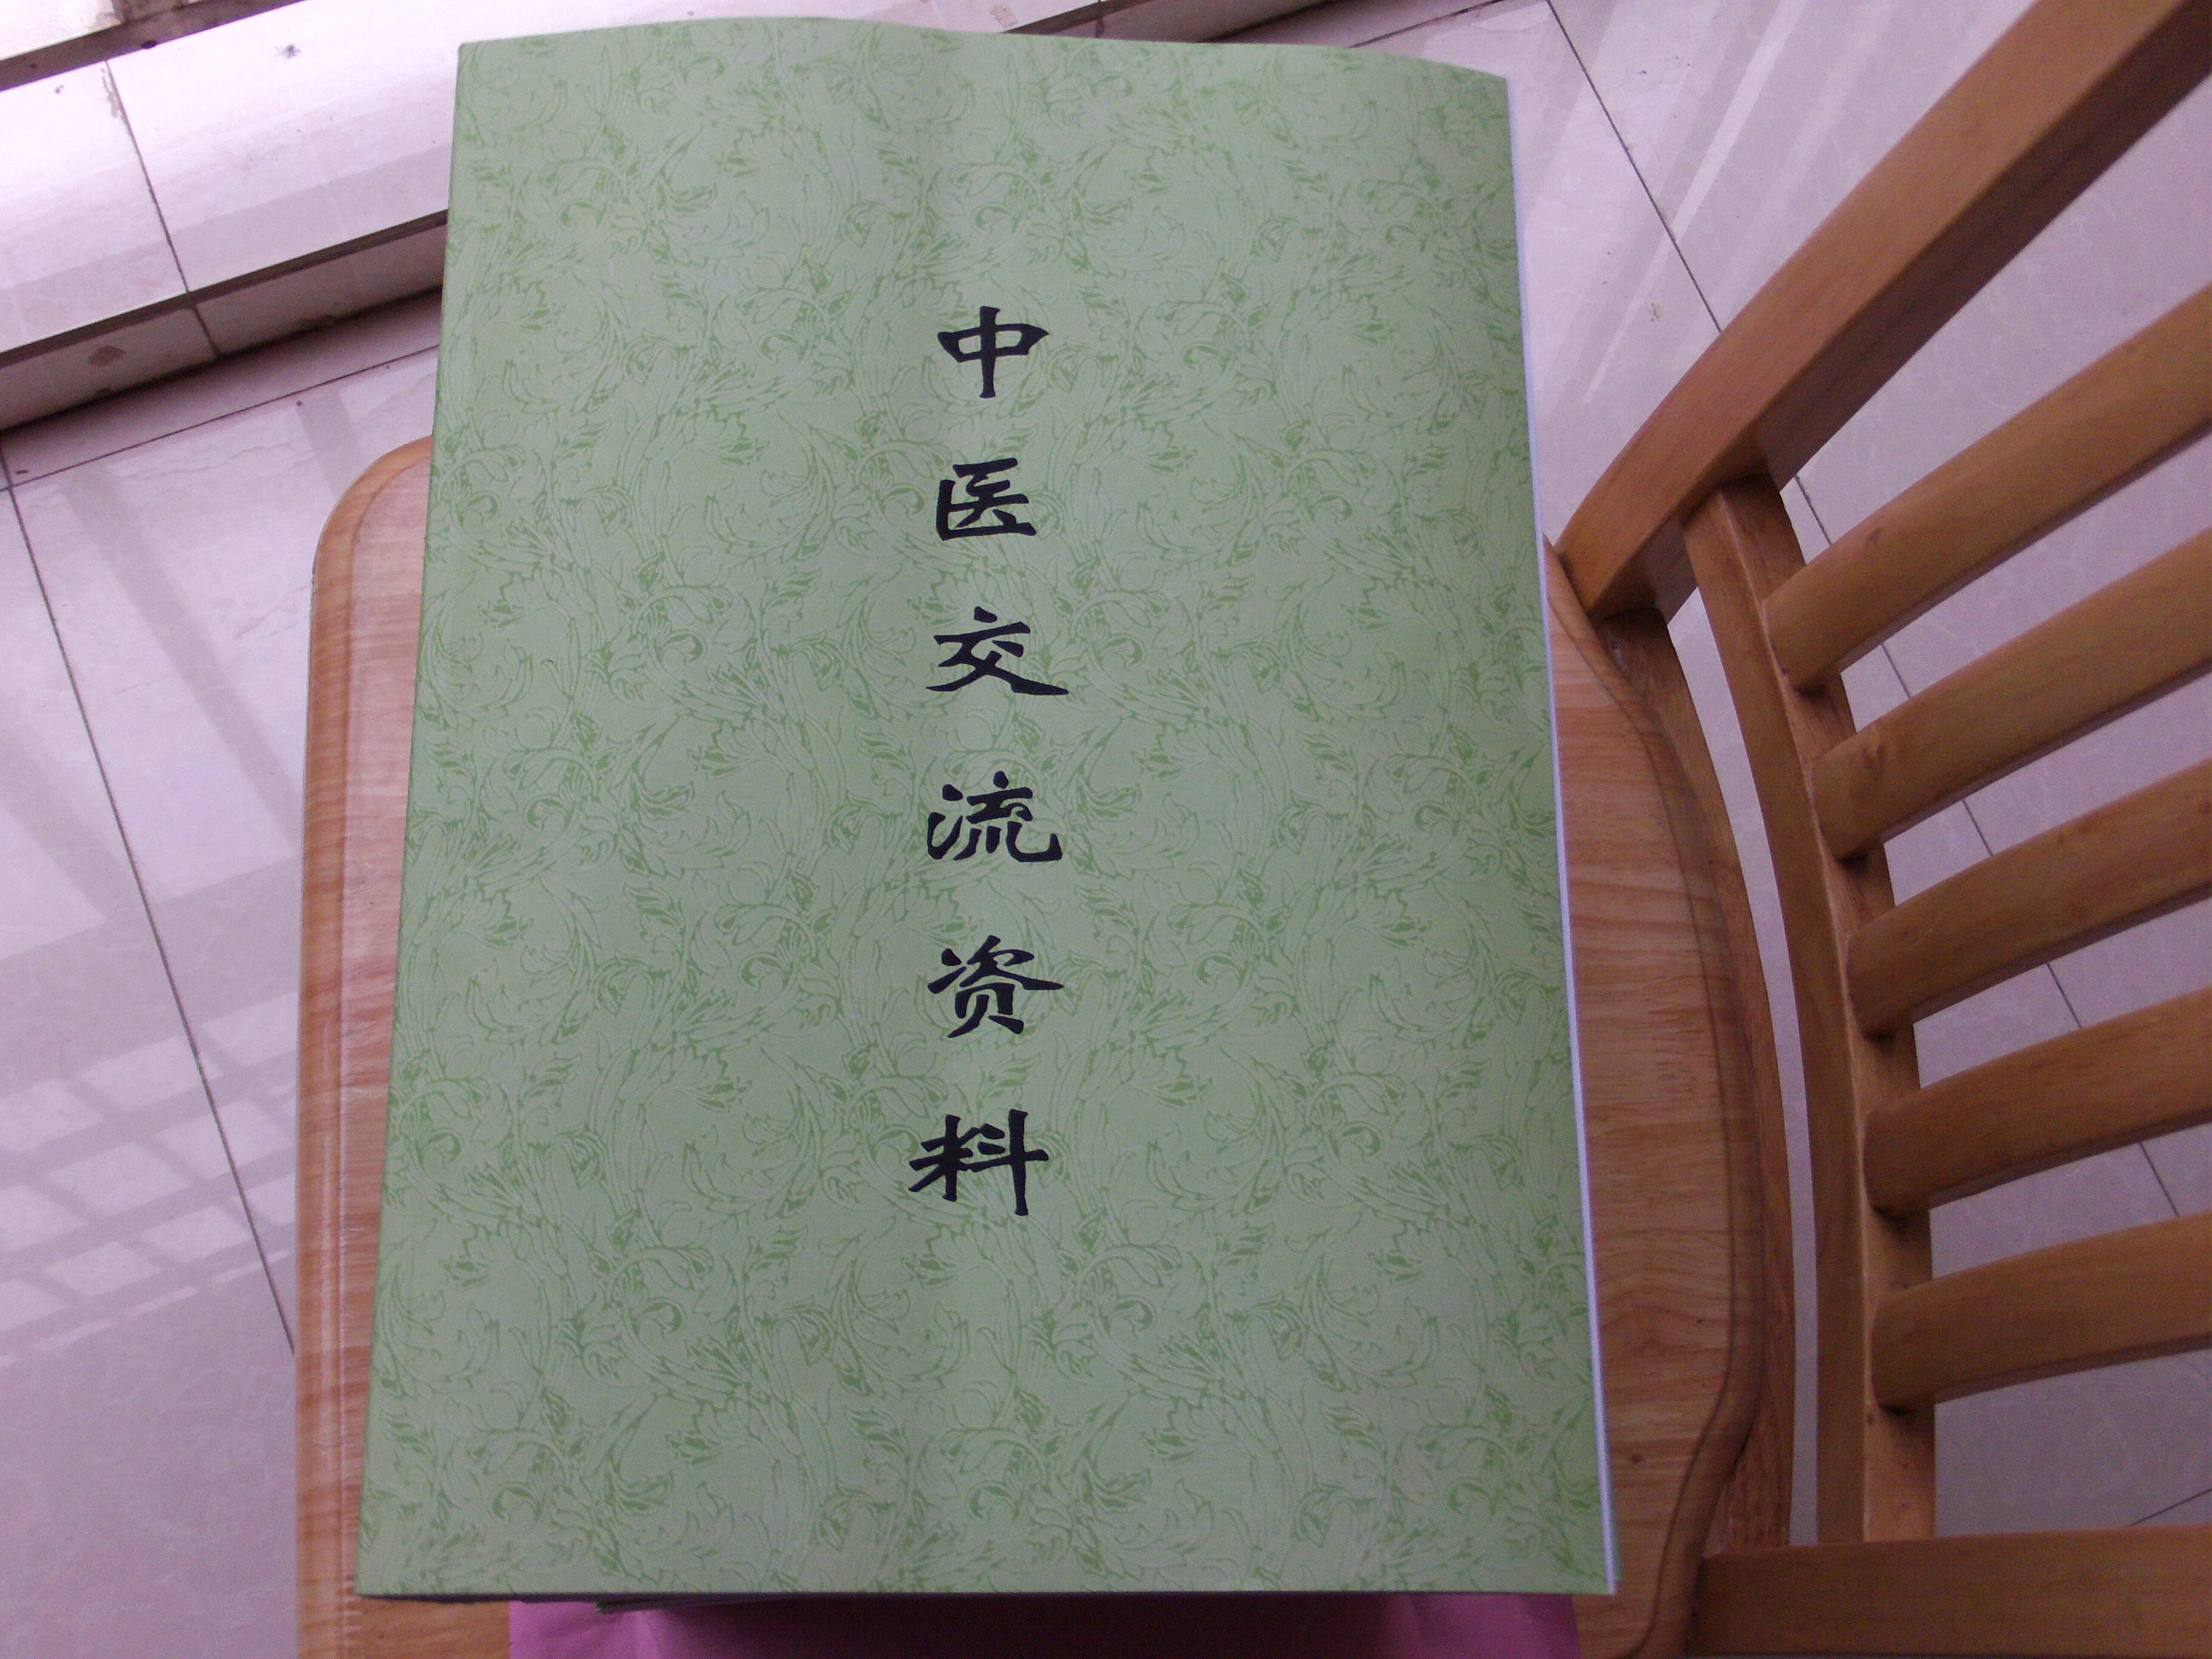 中医交流资料